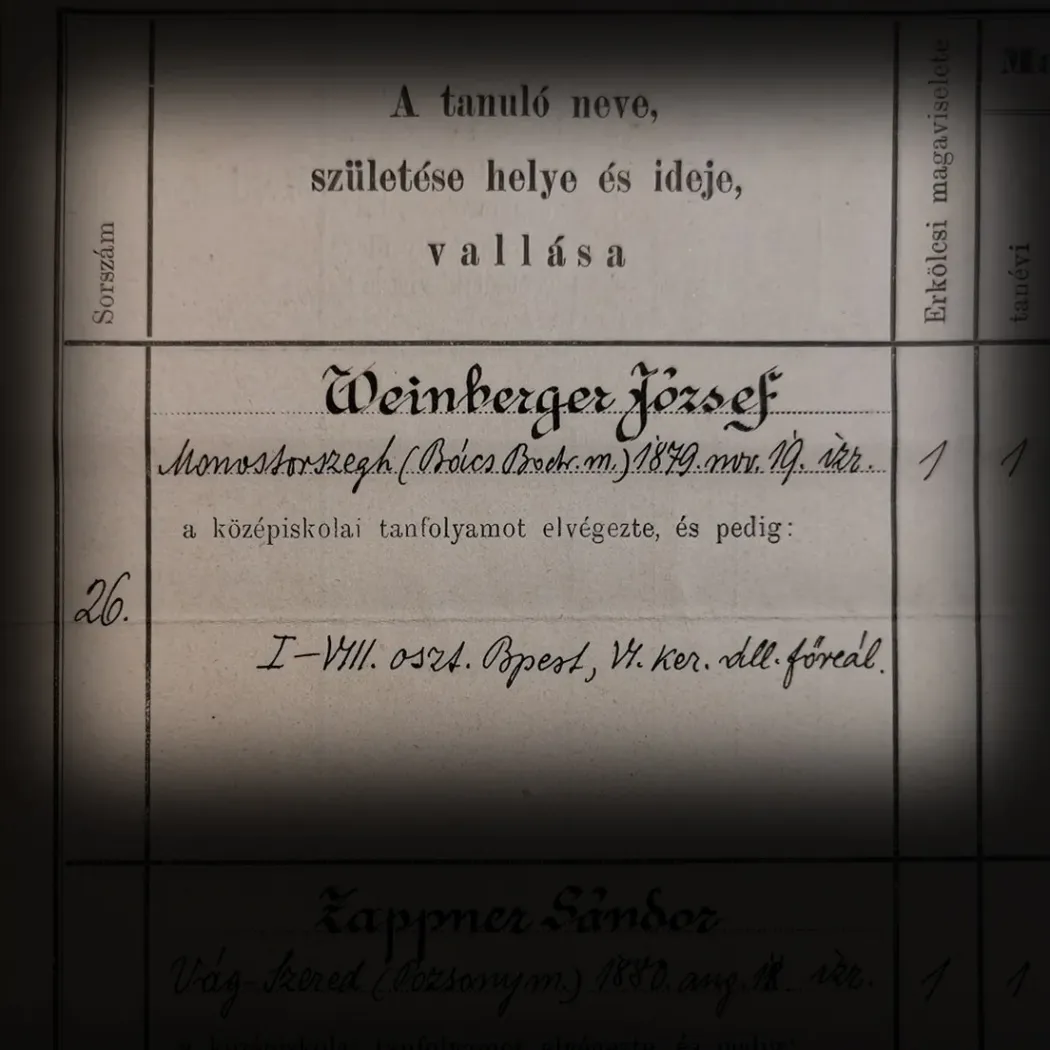 A tanuló neve,
születése helye és ideje,
vallása
Sorszám
Erkölcsi magaviselete
tanévi
Weinberger József
Monostorszegh (Bács Bodr. m.) 1879. nov. 19. izr.
1
1
a középiskolai tanfolyamot elvégezte, és pedig:
26.
I–VIII. oszt. Bpest, VI. ker. áll. főreál.
Zappner Sándor
Vág-Szered (Pozsony m.) 1880. aug. 18. izr.
1
1
a középiskolai tanfolyamot elvégezte, és pedig: